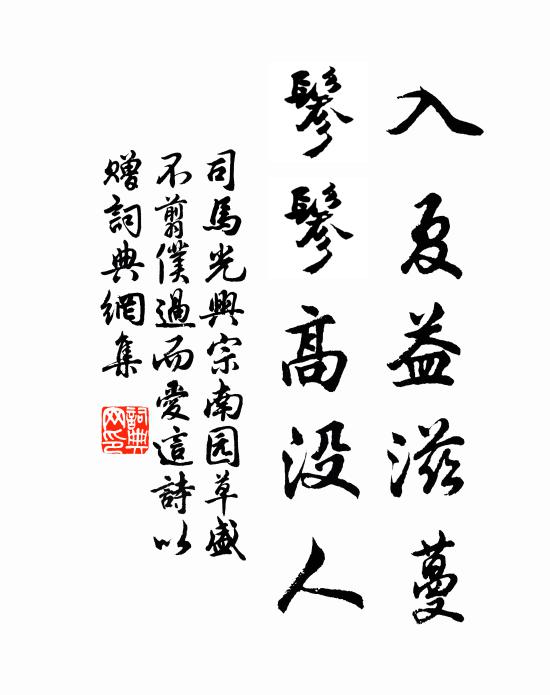 入夏益滋蔓
鬖鬖高没人
司馬光興宗南园草盛
不剪僕過而愛這詩以
贈詞典網集
詞典网印